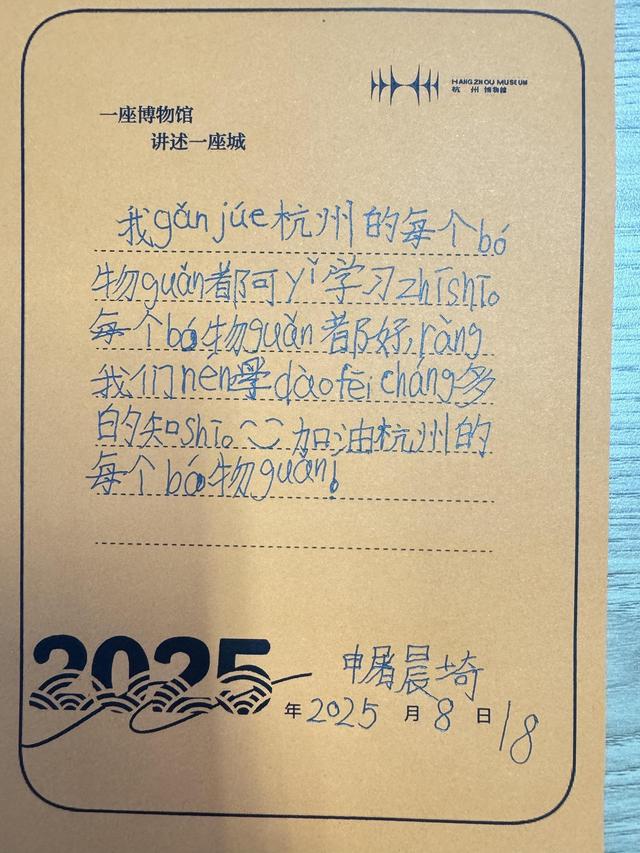 HANGZHOU MUSEUM
杭州博物館
一座博物馆
讲述一座城
我gǎn júe杭州的每个bó
物guǎn都阿yǐ学习zhīshīo
每个bó物guǎn都好,ràng
我们nén学dàofēicháng多
的知shīo 加油杭州的
每个bó物guǎn!
2025
申屠晨埼
年2025月8日18